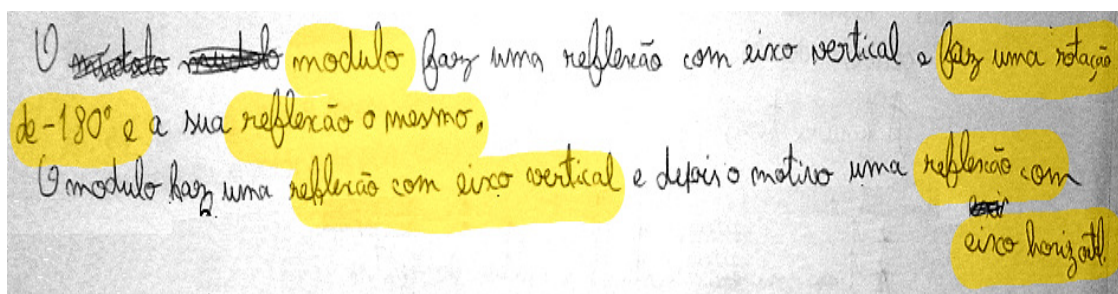 O modulo faz uma reflexão com eixo vertical e faz uma rotação
de -180° e a sua reflexão o mesmo.
O modulo faz uma reflexão com eixo vertical e depois o motivo uma reflexão com
eixo horizotl.